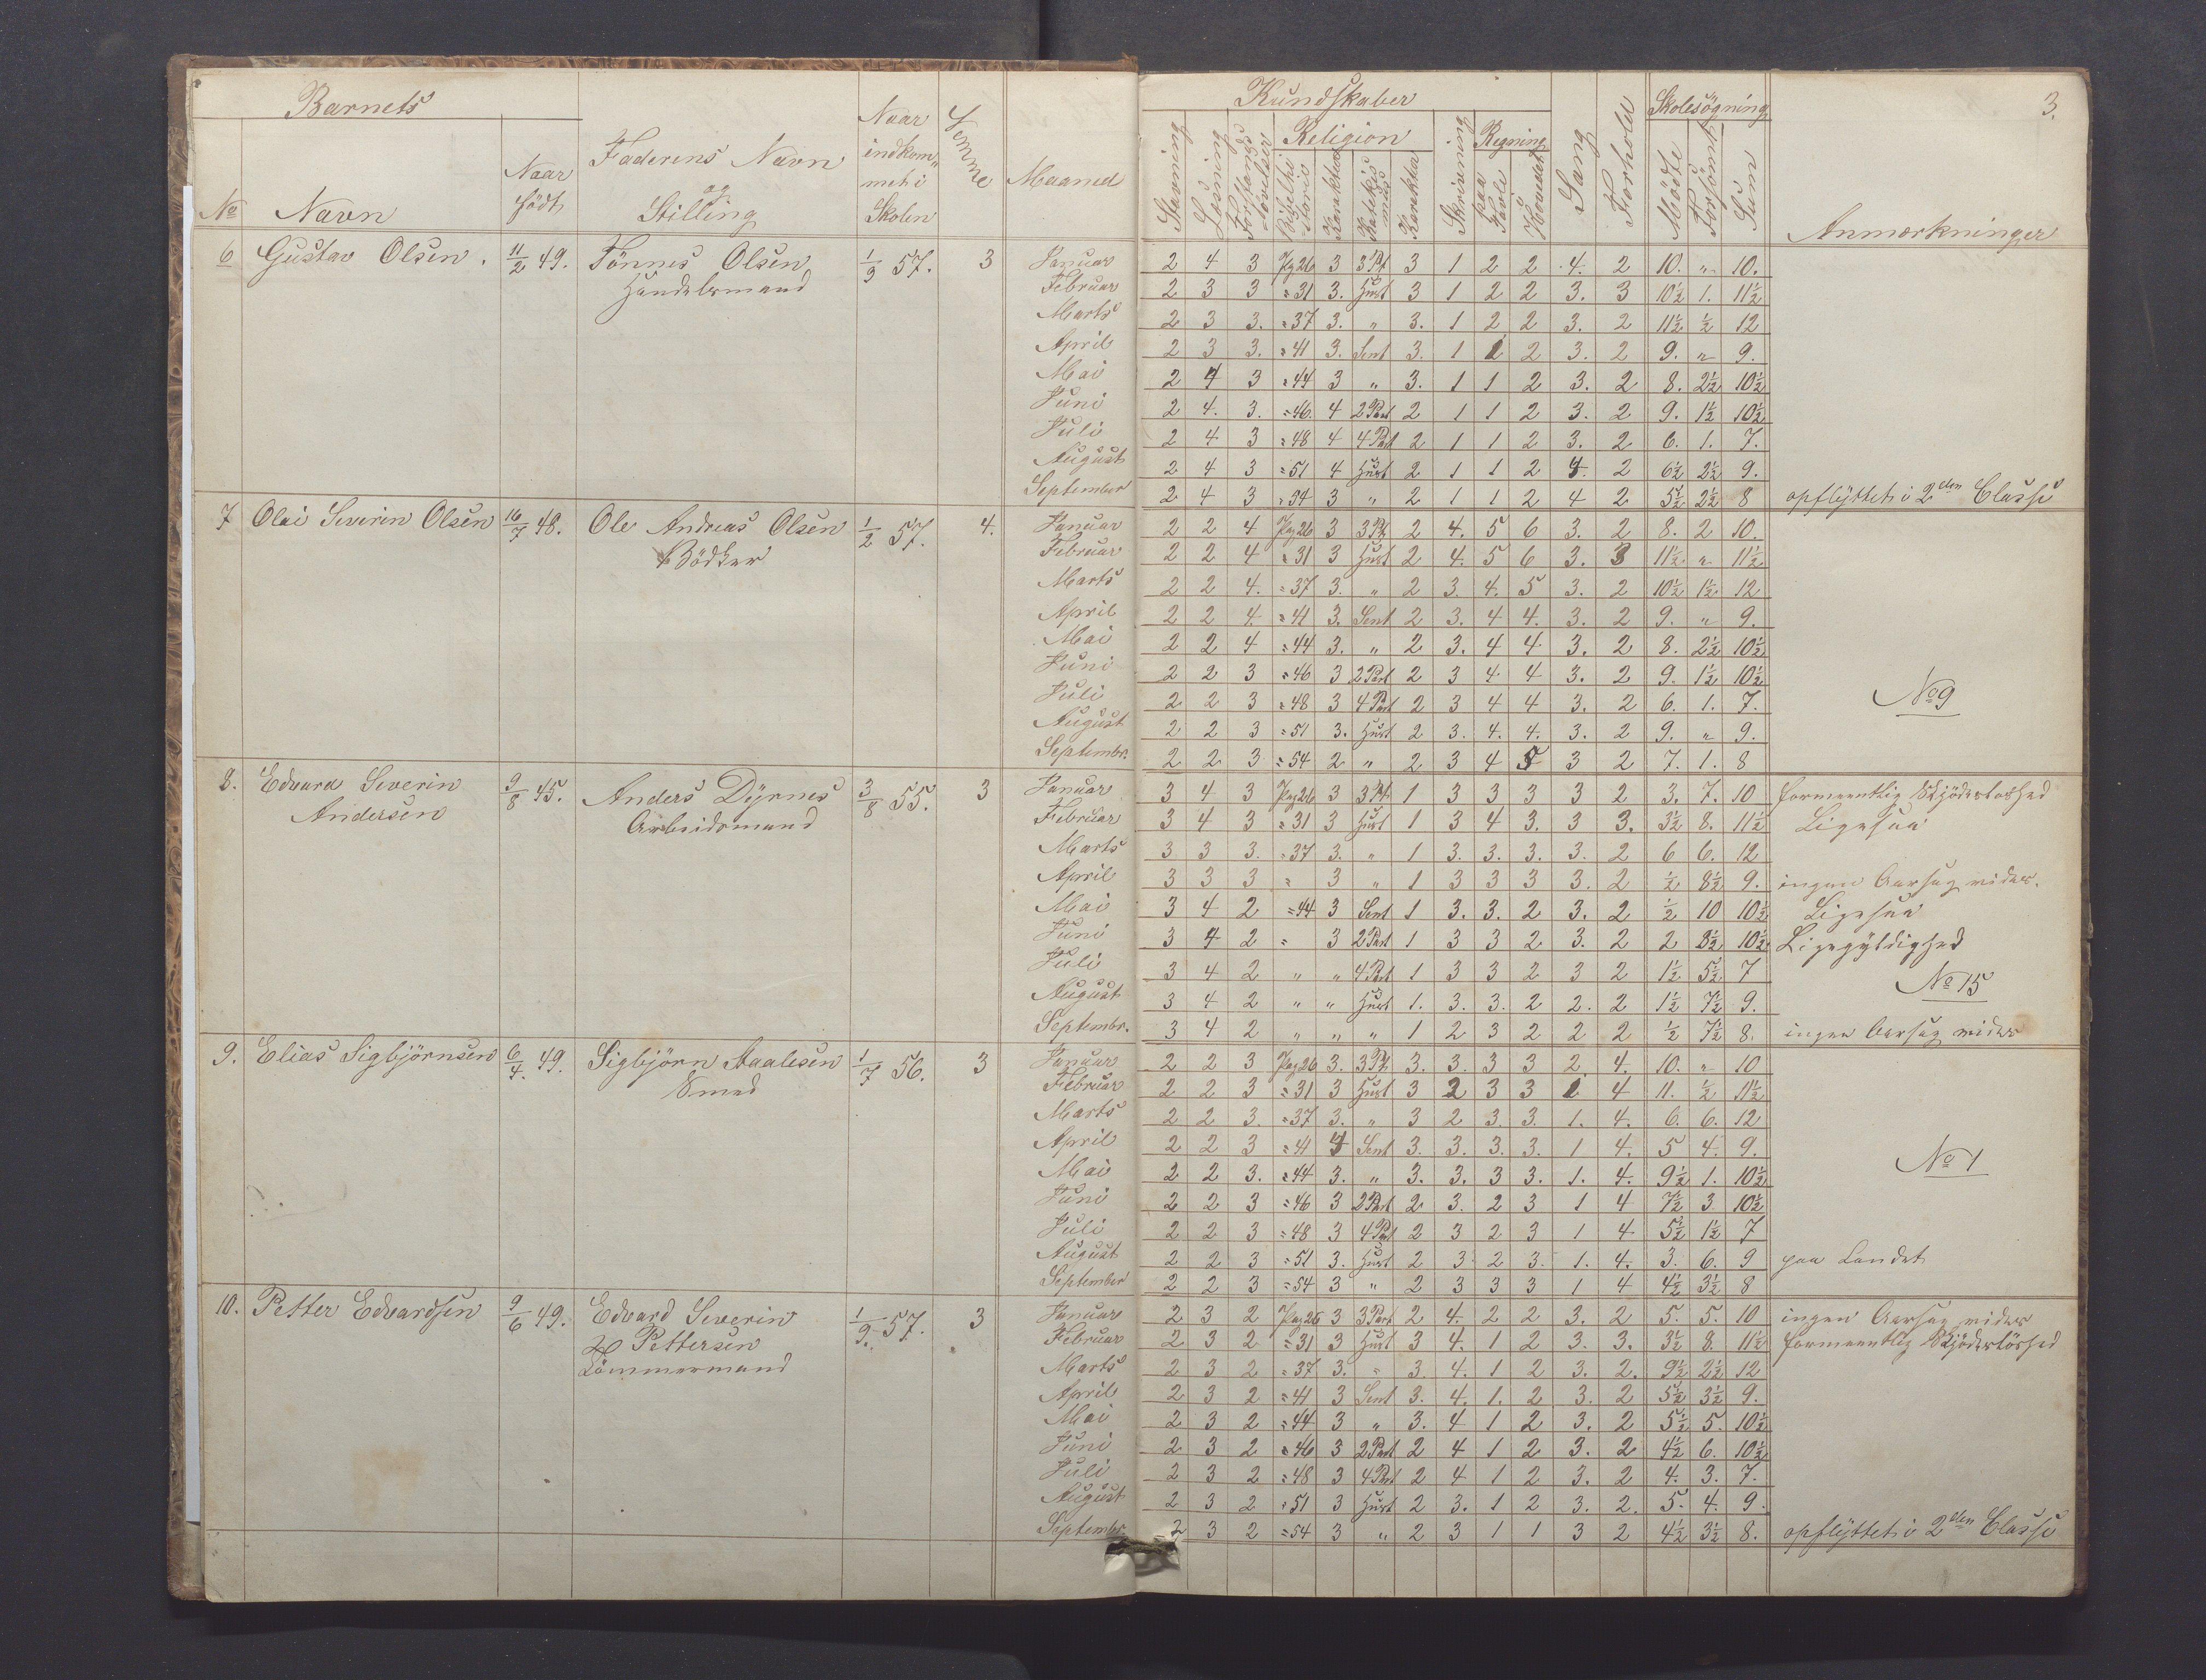 Barnets
No Navn
Naar født
Faderens Navn og Stilling
Naar indkommet i Skolen
Evne
Maaned
Kundskaber
Skolesøgning
3.
Stavning
Læsning
Forstands øvelser
Religion
Bibelhistorie
Karakter
Katekismus
Karakter
Skrivning
Regning
paa Tavle
i Hovedet
Sang
Forhold
Mødte
Forsömt
Sum
Anmærkninger
6 Gustav Olsen. 11/2 49. Tönnes Olsen 1/9 57. 3
Handelsmand
Januar 2 4 3 Pag 26 3 3 Pt 3 1 2 2 4. 2 10. " 10.
Februar 2 3 3 " 31 3. Hust 3 1 2 2 3. 3 10½ 1. 11½
Marts 2 3 3. " 37 3. " 3. 1 2 2 3. 2 11½ ½ 12
April 2 3 3. " 41 3. Sent 3. 1 1 2 3. 2 9. " 9.
Mai 2 4 3 " 44 3 " 3. 1 1 2 3. 2 8. 2½ 10½
Juni 2 4. 3. " 46. 4 2 Part 2 1 1 2 3. 2 9. 1½ 10½
Juli 2 4 3 " 48 4 4 Part 2 1 1 2 3. 2 6. 1. 7.
August 2 4 3 " 51 4 Hust 2 1 1 2 4. 2 6½ 2½ 9.
September 2 4 3 " 54 3 " 2 1 1 2 4 2 5½ 2½ 8 opflÿttet i 2den Classe
7 Olai Severin Olsen 16/7 48. Ole Andreas Olsen 1/2 57. 4.
Bödker
Januar 2 2 4 Pag 26 3 3 Pt 2 4. 5 6 3. 2 8. 2 10.
Februar 2 2 4 " 31 3 Hust 2 4. 5 6 3. 3 11½ " 11½
Marts 2 2 4. " 37 3. " 2 3. 4. 5 3. 2 10½ 1½ 12
April 2 2 4. " 41 3. Sent 2 3. 4 4. 3. 2 9. " 9.
Mai 2 2 4 " 44 3. " 2 3. 4 4 3. 2 8. 2½ 10½
Juni 2 2 3 " 46 3 2 Part 2 3 4 4 3. 2 9. 1½ 10½
Juli 2 2 3 " 48 3 4 Part 2 3 4 4 3. 2 6. 1. 7. No 9
August 2 2 3 " 51 3. Hust 2 3. 4. 4. 3. 2 9. " 9.
Septembr. 2 2 3 " 54 2 " 2 3 4 5 3 2 7. 1. 8
8. Edvard Severin 9/8 45. Anders Dÿrnes 3/8 55. 3
Andersen Arbeidsmand
Januar 3 4 3 Pag 26 3 3 Pt. 1 3 3 3 3 2 3. 7. 10 formeentlig Skjödesloshed
Februar 3 4 3 " 31 3 Hust 1 3 4 3. 3 3. 3½ 8. 11½ Ligesaa
Marts 3 3 3. " 37 3. " 1 3. 3. 3. 3. 2 6 6. 12
April 3 3 3 " 3 " 1 3 3 3 3. 2 ½ 8½ 9. ingen Aarsag vides.
Mai 3 4 2 " 44 3 Sent 1 3. 3. 2 3. 2 ½ 10 10½ Ligesaa
Juni 3 4 2 " 3 2 Part 1 3 3 2 3. 2 2 8½ 10½ Ligegÿldighed
Juli 3 4 2 " " 4 Part 1 3 3 2 3 2 1½ 5½ 7 No 15
August 3 4 2 " " Hust 1. 3. 3. 2 2. 2 1½ 7½ 9.
Septembr. 3 4 2 " " " 1 2 3 2 2 2 ½ 7½ 8. ingen Aarsag vides
9. Elias Sigbjörnsen 6/4. 49. Sigbjörn Aaalesen 1/7 56. 3
Smed
Januar 2 2 3 Pag 26 3. 3 Pt. 3. 3. 3 3 2. 4. 10. " 10
Februar 2 2 3 " 31 3 Hust 3 2 3 3 1 4 11. ½ 11½
Marts 2 2 3. " 37 3. " 3 2 3. 3. 1. 4. 6. 6. 12
April 2 2 3 " 41 4 Sent 3. 3. 3. 3. 1 4. 5 4. 9.
Mai 2 2 3. " 44 3. " 3. 3. 3 3. 1. 4. 9½ 1. 10½ No 1
Juni 2 2 3 " 46 3 2 Part 2 3. 2 3 1 4 7½ 3 10½
Juli 2 2 3 " 48 3 4 Part 2 3 2 3 1 4 5½ 1½ 7
August 2 2 3 " 51 3. Hust 2 3 2 3. 1. 4. 3. 6. 9 paa Landet
September 2 2 3 " 54 3 " 2 3 3 3 1 4 4½ 3½ 8
10. Petter Edvardsen 9/6 49. Edvard Severin 1/9. 57. 3
Pettersen
Tömmermand
Januar 2 3 2 Pag 26 3 3 Part 2 4. 2 2 3. 2 5. 5. 10 ingen Aarsag vides
Februar 2 3 2 " 31 3 Hust 3 4. 1 2 3. 3. 3½ 8. 11½ formeentlig Skjödeslöshed
Marts 2 3 2 " 37 3. " 3. 4. 1 2 3. 2. 9½ 2½ 12
April 2 3 2 " 41 3 Sent 3. 4. 1. 2 3. 2 5½ 3½ 9.
Mai 2 3 2 " 44 3 " 3. 4 1 2 3. 2 5½ 5. 10½
Juni 2 3 2 " 46 3 2 Part 2 4 1 2 3. 2 4½ 6. 10½
Juli 2 3 2 " 48 3 4 Part 2 4 1 2 3. 2 4. 3. 7.
August 2 3 2 " 51 3 Hust 2 3. 1 2 3. 2. 5. 4. 9.
Septembr. 2 3 2 " 54 3 " 2 3 1 1 3 2 4½ 3½ 8. opflÿttet i 2den Classe